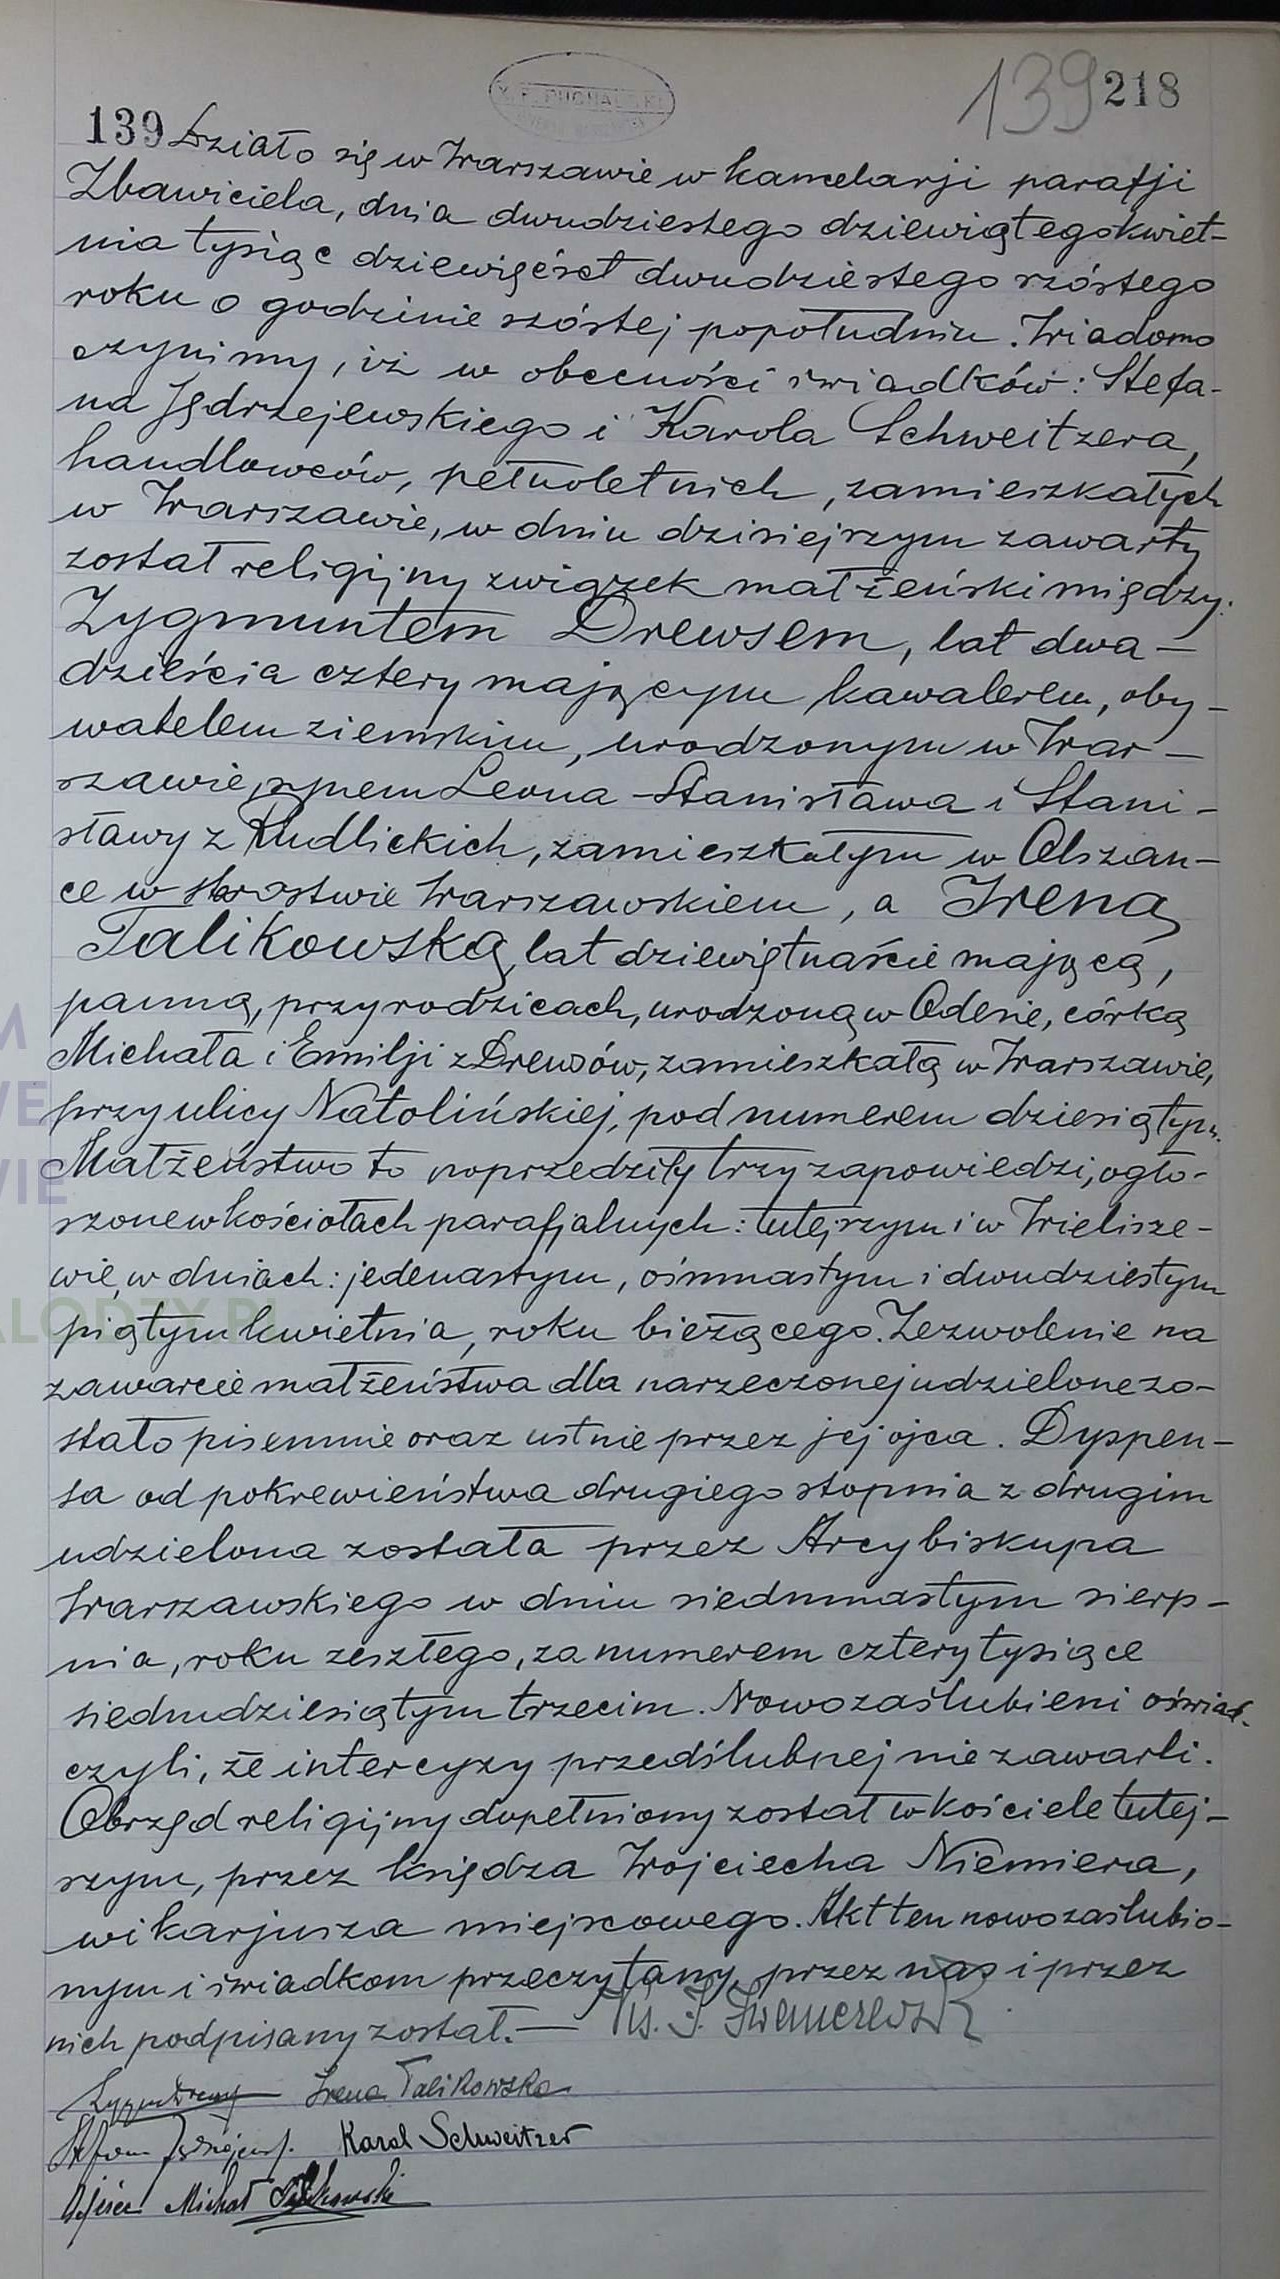 139 218
139 Działo się w Warszawie w kancelarji parafji
Zbawiciela, dnia dwudziestego dziewiątego kwiet-
nia tysiąc dziewięćset dwudziestego szóstego
roku o godzinie szóstej popołudniu. Wiadomo
czynimy, iż w obecności świadków: Stefa-
na Jędrzejewskiego i Karola Schweitzera,
handlowców, pełnoletnich, zamieszkałych
w Warszawie, w dniu dzisiejszym zawarty
został religijny związek małżeński między:
Zygmuntem Drewsem, lat dwa-
dzieścia cztery mającym kawalerem, oby-
watelem ziemskim, urodzonym w War-
szawie, synem Leona-Stanisława i Stani-
sławy z Rudlickich, zamieszkałym w Olszan-
ce w starostwie Warszawskiem, a Ireną
Talikowską, lat dziewiętnaście mającą,
panną, przy rodzicach, urodzoną w Odesie, córką
Michała i Emilji z Drewsów, zamieszkałą w Warszawie,
przy ulicy Natolińskiej, pod numerem dziesiątym.
Małżeństwo to poprzedziły trzy zapowiedzi, ogło-
szone w kościołach parafjalnych: tutejszym i w Wielisze-
wie, w dniach: jedenastym, ośmnastym i dwudziestym
piątym kwietnia, roku bieżącego. Zezwolenie na
zawarcie małżeństwa dla narzeczonej udzielone zo-
stało pisemnie oraz ustnie przez jej ojca. Dyspen-
sa od pokrewieństwa drugiego stopnia z drugim
udzielona została przez Arcybiskupa
Warszawskiego w dniu siedmnastym sierp-
nia, roku zeszłego, za numerem cztery tysiące
siedmdziesiątym trzecim. Nowozaślubieni oświad-
czyli, że intercyzy przedślubnej nie zawarli.
Obrzęd religijny dopełniony został w kościele tutej-
szym, przez księdza Wojciecha Niemiera,
wikarjusza miejscowego. Akt ten nowozaślubio-
nym i świadkom przeczytany, przez nas i przez
nich podpisany został.— Ks. J.
Irena Talikowska
Karol Schweitzer
Ojciec Michał Talikowski